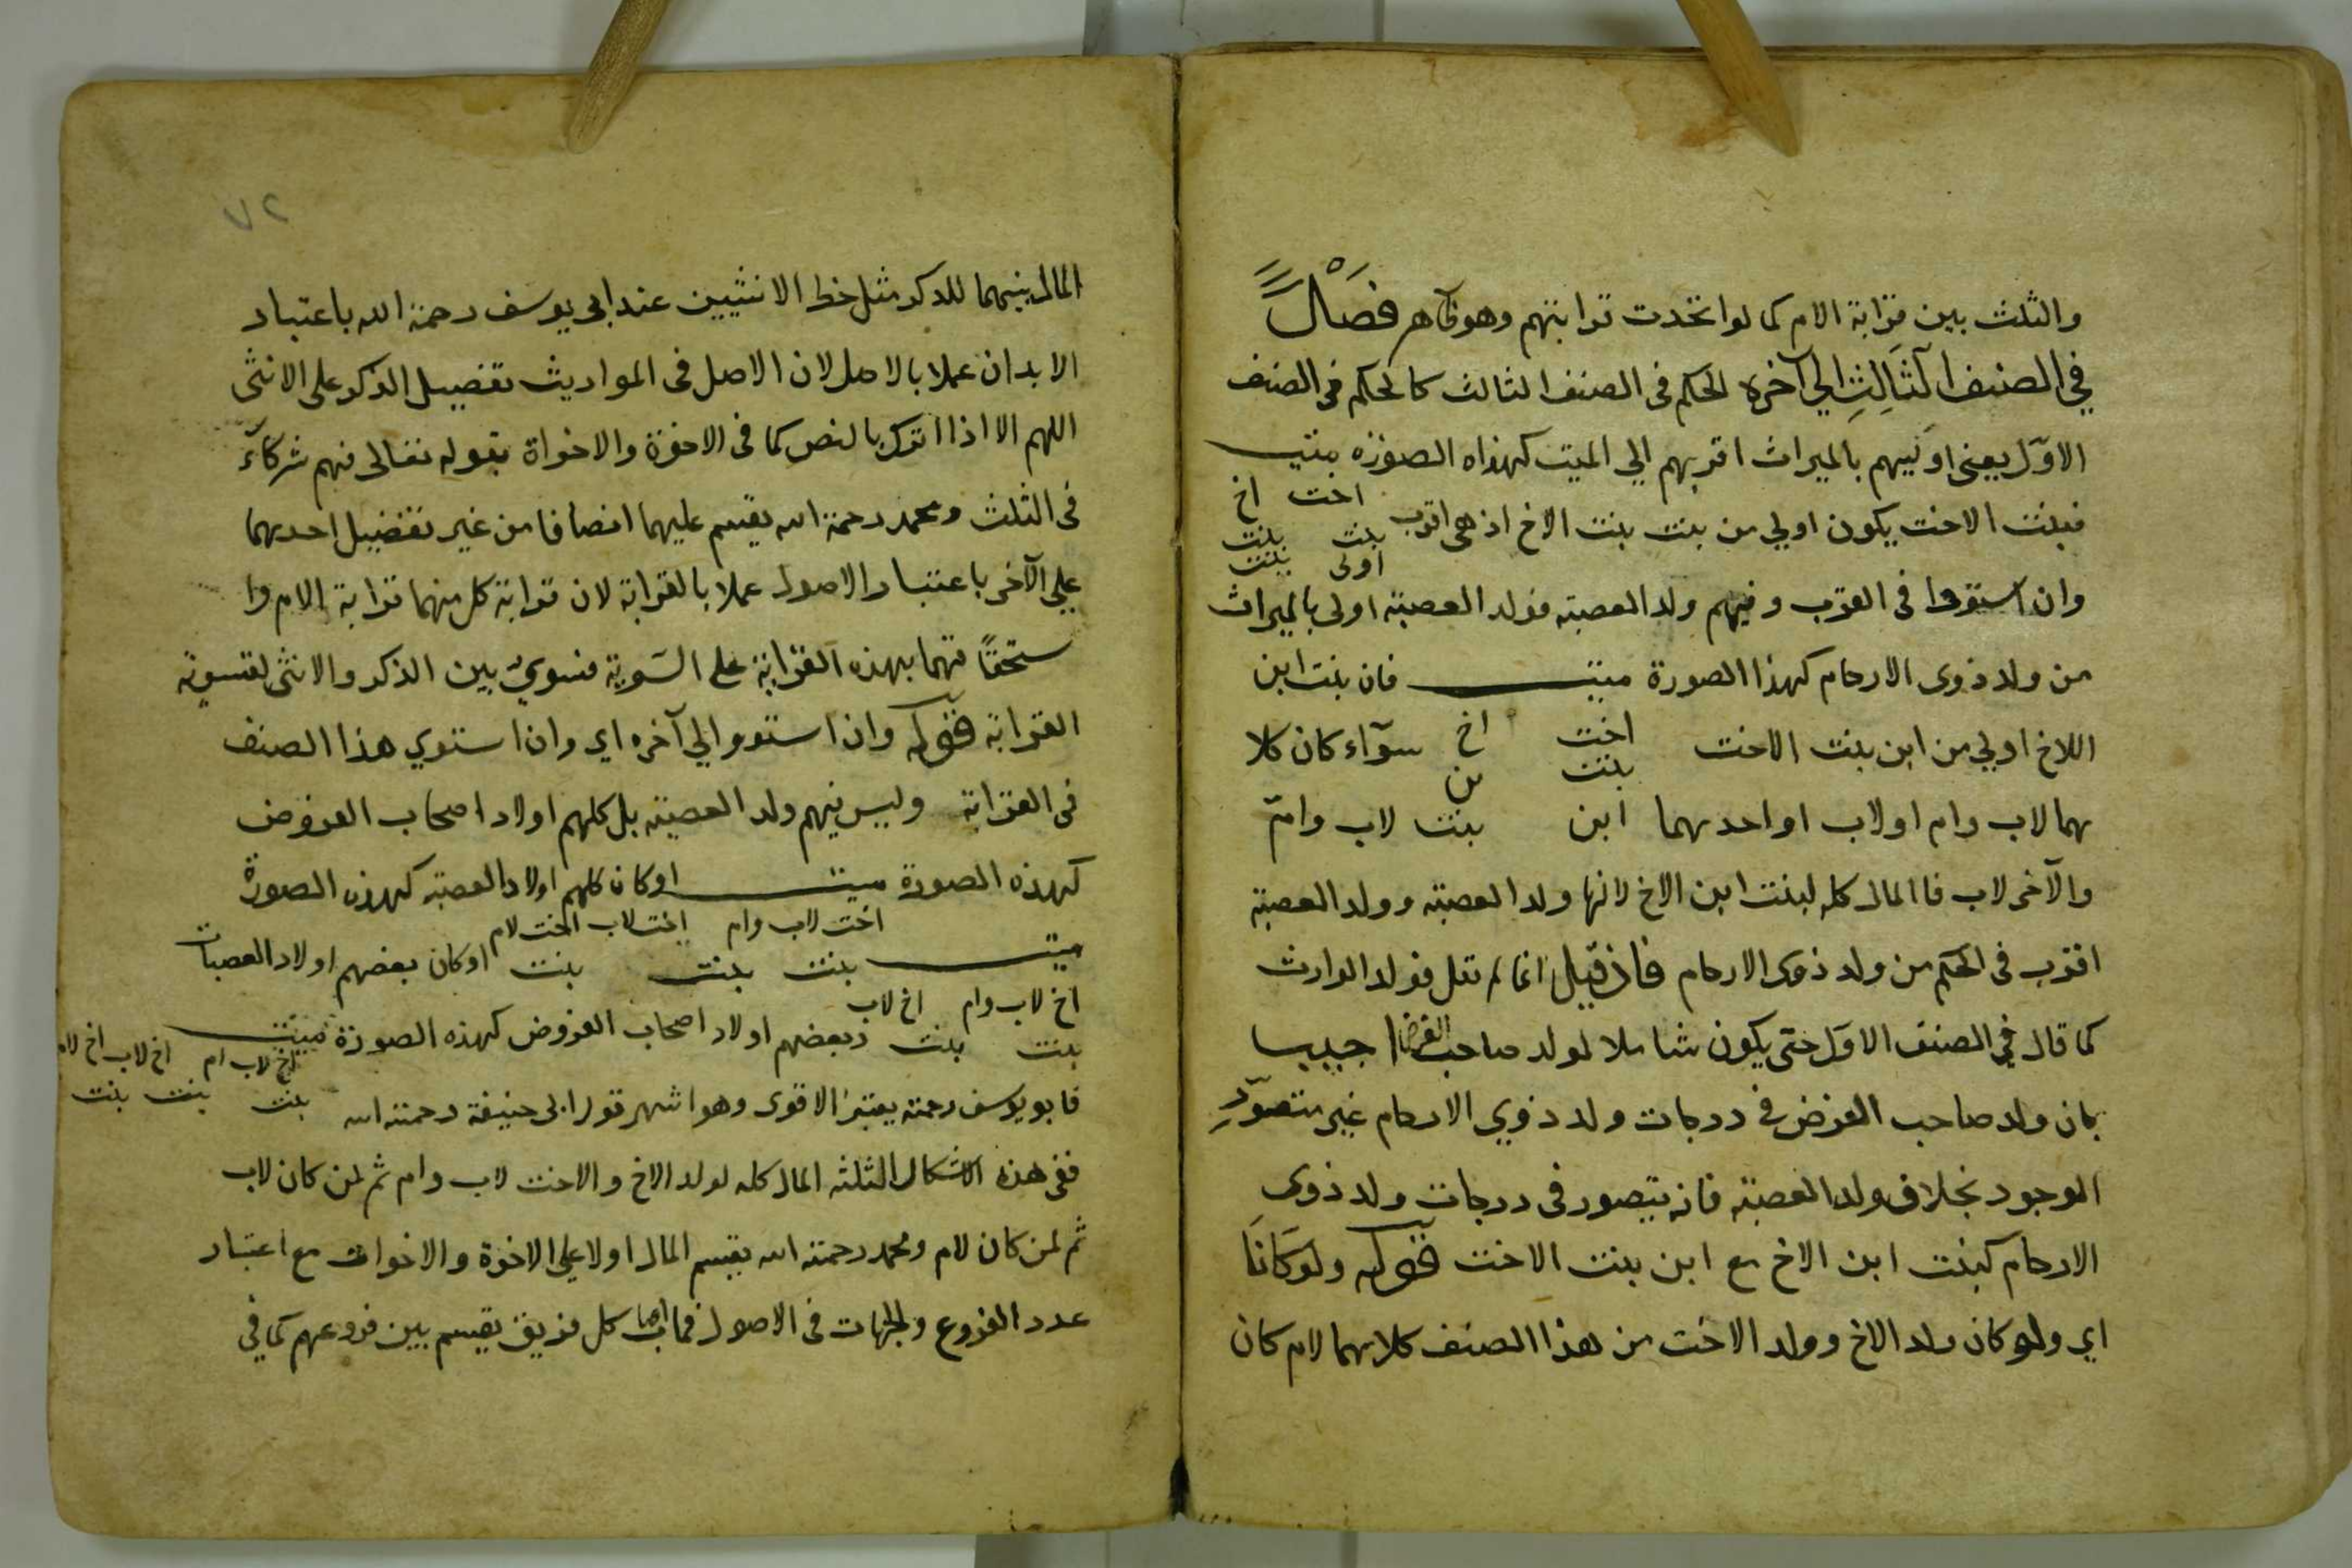 والثلث بين قرابة الام كما لو اتحدت قرابتهم وهو ظاهر فصل
في الصنف الثالث الي آخره الحكم فى الصنف الثالث كالحكم فى الصنف
الاول يعنى اوليهم بالميراث اقربهم الي الميت كهذاه الصورة ميت
اخت اخ
فبنت الاخت يكون اولي من بنت بنت الاخ اذ هى اقرب بنت بنت
اولى بنت
وان استووا فى القرب وفيهم ولد العصبة فولد العصبة اولى بالميراث
من ولد ذوى الارحام كهذا الصورة ميت فان بنت ابن
الاخ اولي من ابن بنت الاخت اخت اخ سوآء كان كلا
بنت بن
هما لاب وام او لاب او احدهما ابن بنت لاب وام
والآخر لاب فا المال كله لبنت ابن الاخ لانها ولد العصبة وولد العصبة
اقرب فى الحكم من ولد ذوى الارحام فان قيل انما لم تقل فولد الوارث
كما قال في الصنف الاول حتى يكون شاملا لولد صاحب الفرض اجيب
بان ولد صاحب الفرض في درجات ولد ذوي الارحام غير متصور
الوجود بخلاف ولد العصبة فانه يتصور فى درجات ولد ذوى
الارحام كبنت ابن الاخ مع ابن بنت الاخت قوله ولو كانا
اي ولو كان ولد الاخ وولد الاخت من هذا الصنف كلاهما لام كان
٧٢
المال بينهما للذكر مثل حظ الانثيين عند ابى يوسف رحمة الله باعتبار
الابدان عملا بالاصل لان الاصل فى المواريث تفضيل الذكر على الانثى
اللهم الا اذا اترك بالنص كما فى الاخوة والاخواة بقوله تعالى فهم شركآء
فى الثلث ومحمد رحمة الله يقسم عليهما انصافا من غير تفضيل احدهما
علي الآخر باعتبار الاصول عملا بالقرابة لان قرابة كل منهما قرابة الام وا
ستحقا قهما بهذه القرابة على السوية فسوي بين الذكر والانثى لتسوية
القرابة قوله وان استووا الي آخره اي وان استوي هذا الصنف
فى القرابة وليس فيهم ولد العصبة بل كلهم اولاد اصحاب الفروض
كهذه الصورة ميت او كان كلهم اولاد العصبة كهذه الصورة
اخت لاب وام اخت لاب اخت لام
ميت بنت بنت بنت او كان بعضهم اولاد العصبات
اخ لاب وام اخ لاب
بنت بنت وبعضهم اولاد اصحاب الفروض كهذه الصورة ميت
اخ لاب ام اخ لاب اخ لام
فابو يوسف رحمة يعتبر الاقوى وهو اشهر قول ابى حنيفة رحمة الله بنت بنت بنت
ففى هذه الاشكال الثلثة المال كله لولد الاخ والاخت لاب وام ثم لمن كان لاب
ثم لمن كان لام ومحمد رحمة الله يقسم المال اولا علي الاخوة والاخوات مع اعتبار
عدد الفروع والجهات فى الاصول فما اصاب كل فريق يقسم بين فروعهم كما في